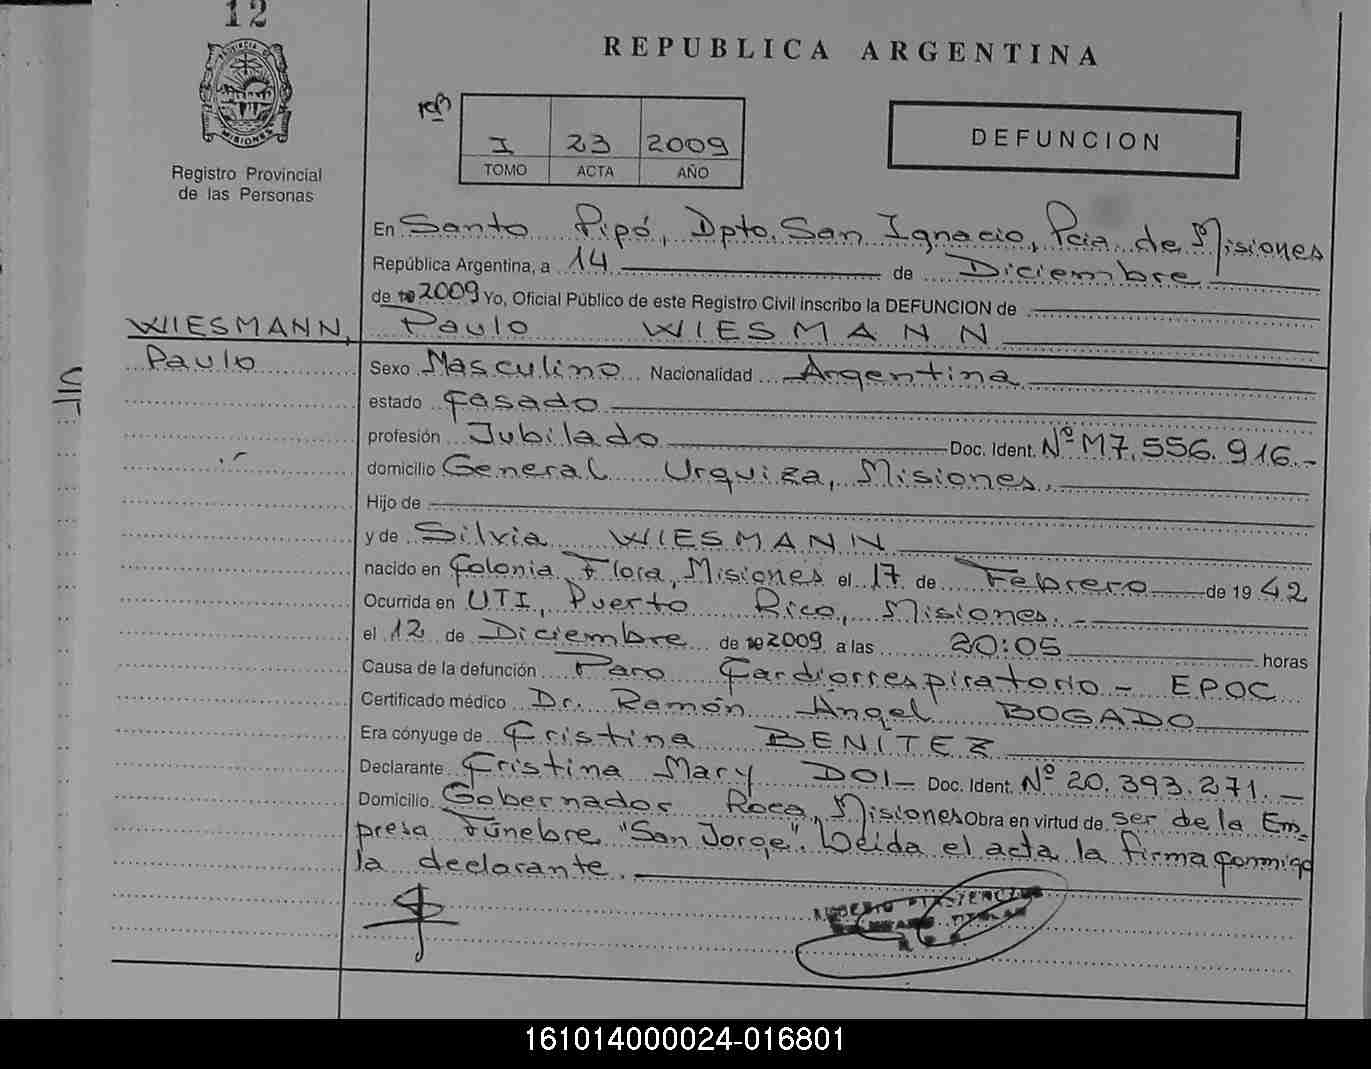 12
REPUBLICA ARGENTINA
PROVINCIA DE
MISIONES
Registro Provincial
de las Personas
I 23 2009
TOMO ACTA AÑO
DEFUNCION
En Santo Pipó, Dpto. San Ignacio, Pcia. de Misiones
República Argentina, a 14 de Diciembre
de 2009 Yo, Oficial Público de este Registro Civil inscribo la DEFUNCION de
WIESMANN, Paulo WIESMANN
Paulo
Sexo Masculino Nacionalidad Argentina
estado Casado
profesión Jubilado Doc. Ident. Nº M7.556.916.-
domicilio General Urquiza, Misiones.
Hijo de
y de Silvia WIESMANN
nacido en Colonia Flora, Misiones el 17 de Febrero de 1942
Ocurrida en UTI, Puerto Rico, Misiones. -
el 12 de Diciembre de 2009 a las 20:05 horas
Causa de la defunción Paro Cardiorrespiratorio - EPOC
Certificado médico Dr. Ramón Angel BOGADO
Era cónyuge de Cristina BENÍTEZ
Declarante Cristina Mary DOI - Doc. Ident. Nº 20.393.271. -
Domicilio Gobernador Roca, Misiones Obra en virtud de ser de la Em=
presa Fúnebre "San Jorge". Leída el acta la firma conmigo
la declarante.
161014000024-016801